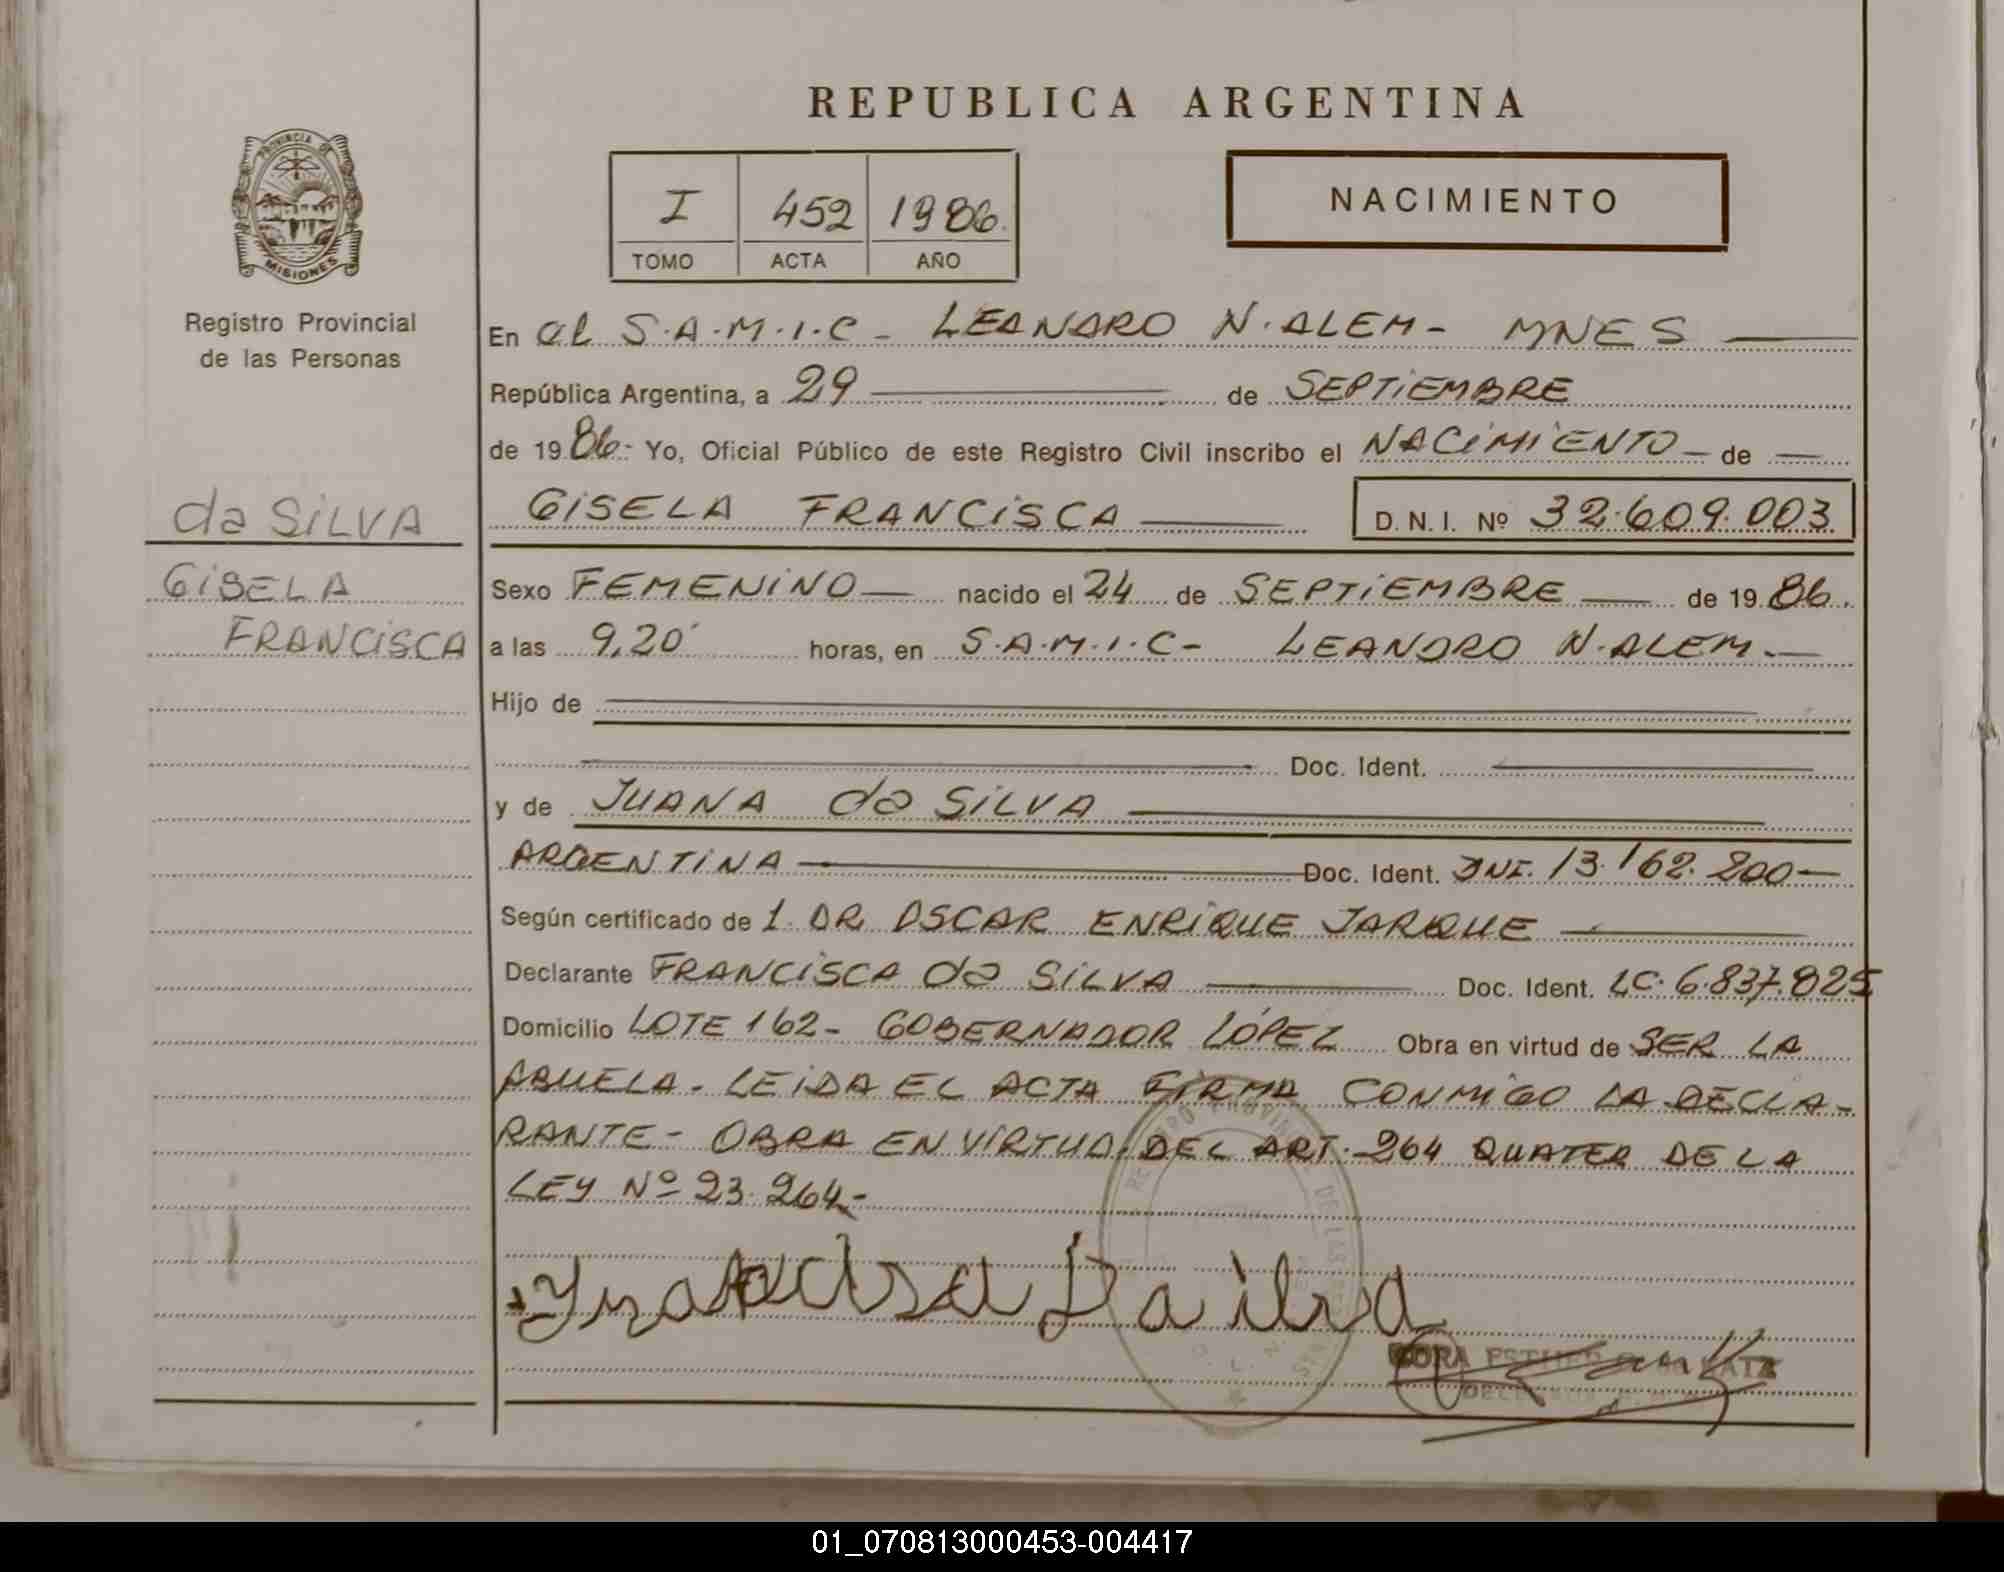 REPUBLICA ARGENTINA
PROVINCIA DE
MISIONES
Registro Provincial
de las Personas
I 452 1986.
TOMO ACTA AÑO
NACIMIENTO
En el S.A.M.I.C - LEANDRO N. ALEM - MNES
República Argentina, a 29 de SEPTIEMBRE
de 1986.- Yo, Oficial Público de este Registro Civil inscribo el NACIMIENTO de
GISELA FRANCISCA D.N.I. Nº 32.609.003
da SILVA
GISELA
FRANCISCA
Sexo FEMENINO nacido el 24 de SEPTIEMBRE de 1986.
a las 9,20' horas, en S.A.M.I.C - LEANDRO N. ALEM.-
Hijo de
Doc. Ident.
y de JUANA da SILVA
ARGENTINA Doc. Ident. DNI. 13.162.200-
Según certificado de 1. DR OSCAR ENRIQUE JARQUE
Declarante FRANCISCA da SILVA Doc. Ident. LC. 6.837.825
Domicilio LOTE 162 - GOBERNADOR LÓPEZ Obra en virtud de SER LA
ABUELA - LEIDA EL ACTA FIRMA CONMIGO LA DECLA-
RANTE - OBRA EN VIRTUD DEL ART. 264 QUATER DE LA
LEY Nº 23.264.-
Francisca Da silva
REGISTRO PROVINCIAL DE LAS
DORA ESTHER KATZ
01_070813000453-004417